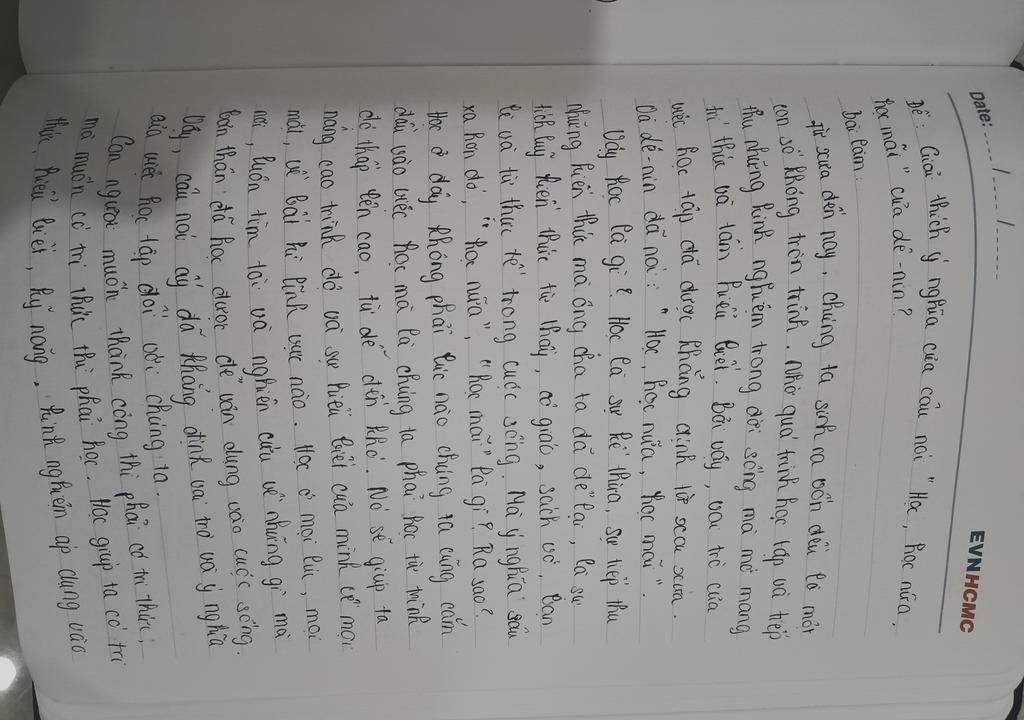 Date: ..... / ..... / .....
EVNHCMC
Đề: Giải thích ý nghĩa của câu nói "Học, học nữa,
học mãi" của Lê-nin?
Bài làm:
Từ xưa đến nay, chúng ta sinh ra vốn đều là một
con số không tròn trĩnh. Nhờ quá trình học tập và tiếp
thu những kinh nghiệm trong đời sống mà mở mang
tri thức và tầm hiểu biết. Bởi vậy, vai trò của
việc học tập đã được khẳng định từ xưa xửa.
Và Lê-nin đã nói: "Học, học nữa, học mãi".
Vậy học là gì? Học là sự kế thừa, sự tiếp thu
những kiến thức mà ông cha ta đã để lại, là sự
tích luỹ kiến thức từ thầy, cô giáo, sách vở, bạn
bè và từ thực tế trong cuộc sống. Mà ý nghĩa sâu
xa hơn đó, "học nữa", "học mãi" là gì? Ra sao?
Học ở đây không phải lúc nào chúng ta cũng cắm
đầu vào việc học mà là chúng ta phải học từ trình
độ thấp đến cao, từ dễ đến khó. Nó sẽ giúp ta
nâng cao trình độ và sự hiểu biết của mình về mọi
mặt, về bất kì lĩnh vực nào. Học ở mọi lúc, mọi
nơi, luôn tìm tòi và nghiên cứu về những gì mà
bản thân đã học được để vận dụng vào cuộc sống.
Vậy, câu nói ấy đã khẳng định vai trò và ý nghĩa
của việc học tập đối với chúng ta.
Con người muốn thành công thì phải có tri thức,
mà muốn có tri thức thì phải học. Học giúp ta có tri
thức, hiểu biết, kỹ năng, kinh nghiệm áp dụng vào